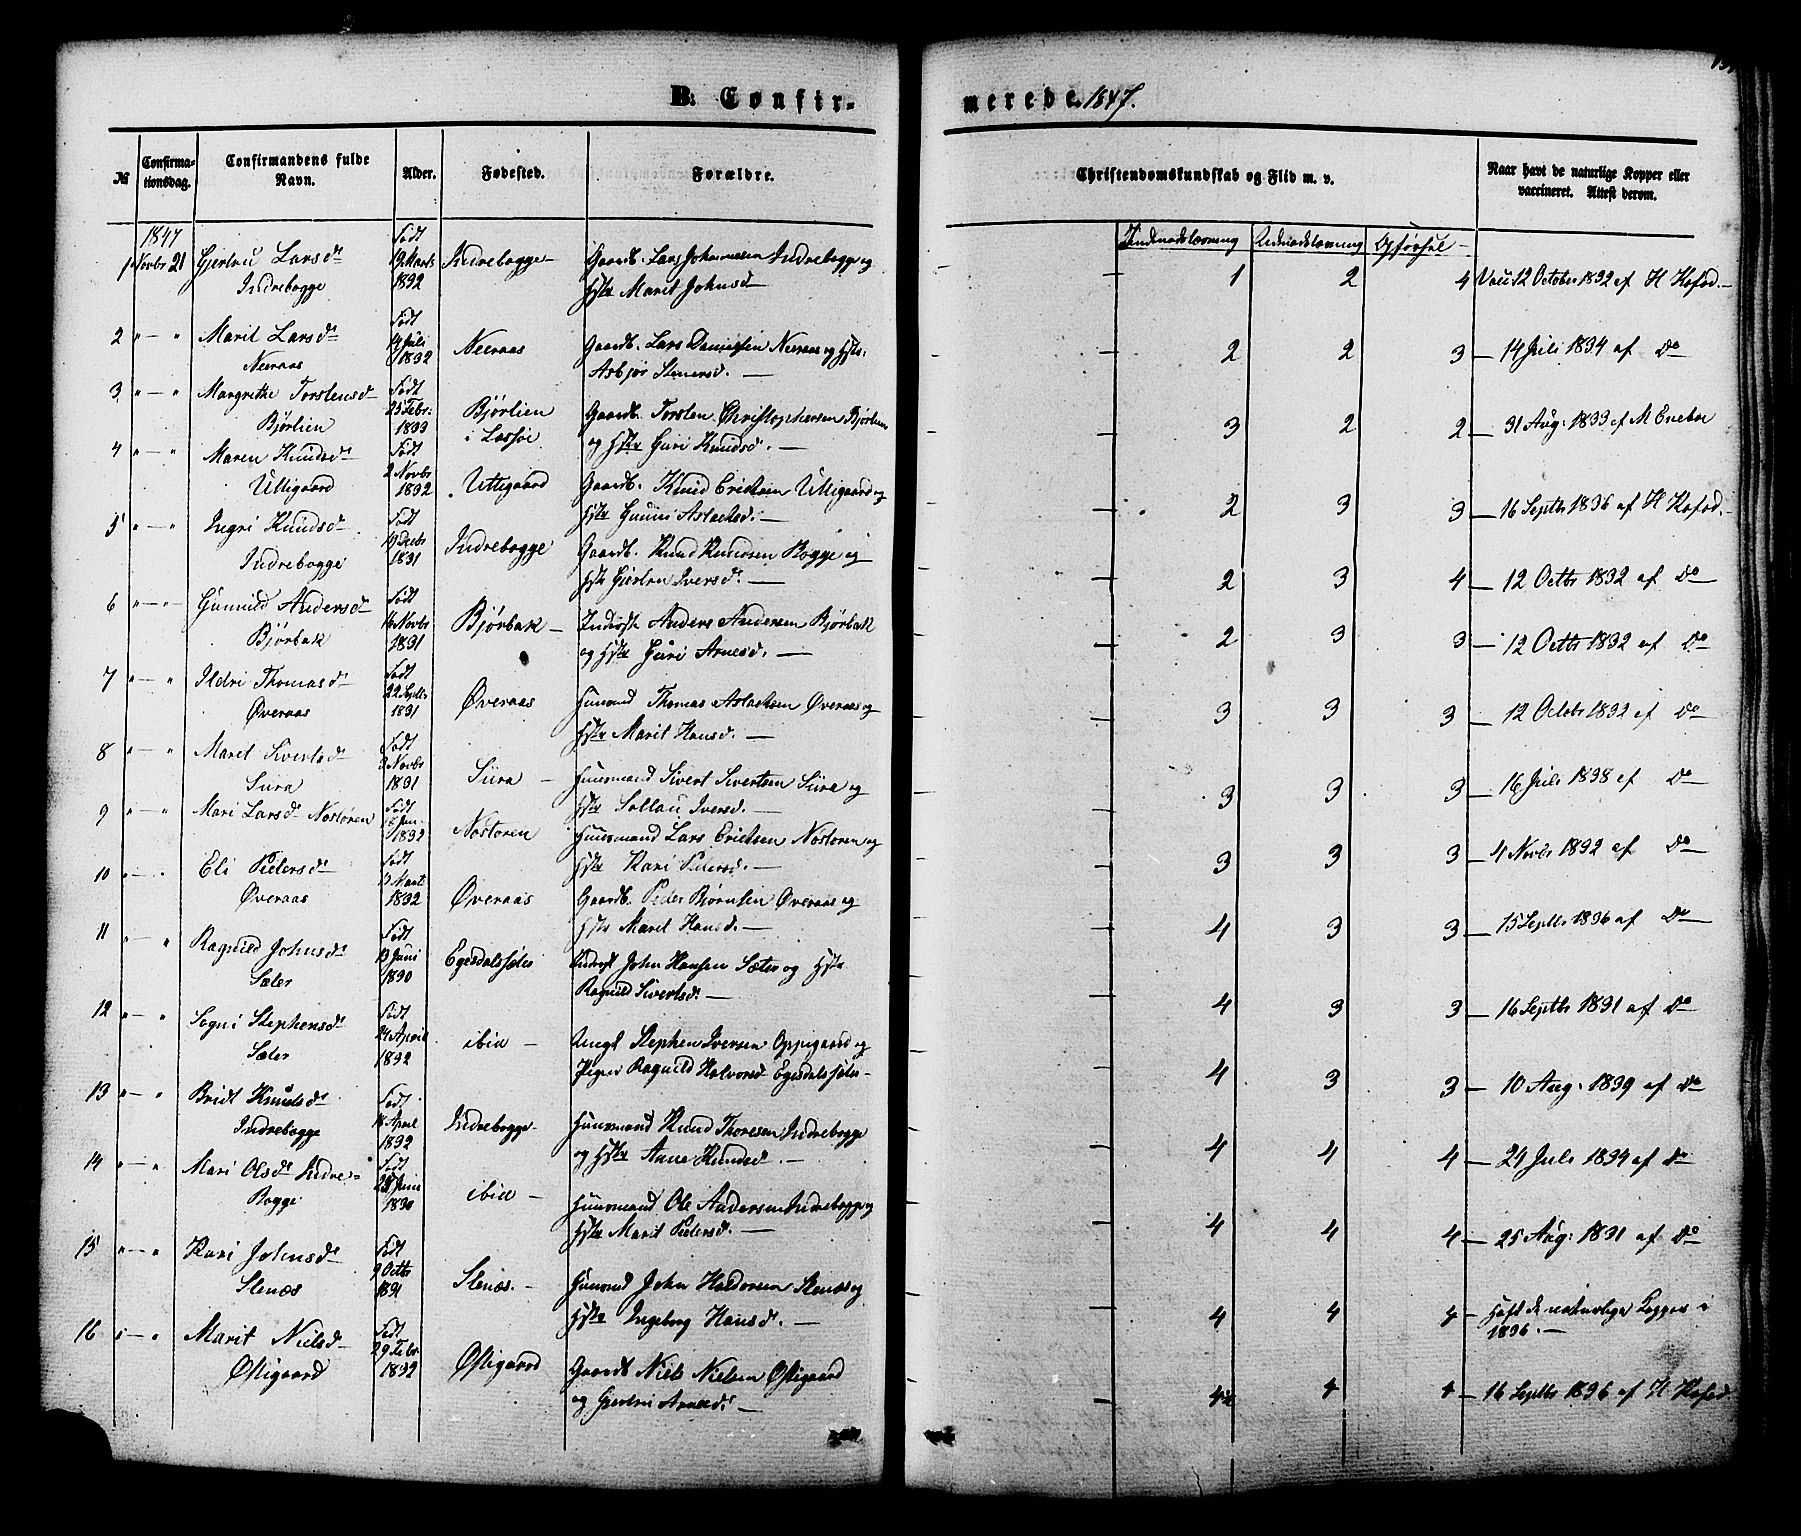 B: Confir-
merede 1847.
№
Confirma-
tionsdag.
Confirmandens fulde
Navn.
Alder.
Fødested.
Forældre.
Christendomskundskab og Flid m. v.
Naar havt de naturlige Kopper eller
vaccineret. Attest derom.
1847
1 Novbr 21 Gjertru Larsdr Indrebogge Født 19 Marts 1832 Indrebogge Gaardb. Lars Johannesen Indrebogge og
Hstr Marit Johnsd 1 2 4 Vacc 12 October 1832 af H Kofod.
2 " — " Marit Larsdr Neeraas Født 14 Juli 1832 Neeraas Gaardb. Lars Danielsen Neeraas og Hstr.
Asbjør Steners d. 2 2 3 14 Juli 1834 af Do
3 " — " Margrethe Torstensd Bjørlien Født 25 Febr. 1833 Bjørlien i Lassøe Gaardb. Torsten Christophersen Bjørlien
og Hstr Guri Knudsd. 3 2 2 31 Aug: 1833 af M Eneboe
4 " — " Maren Knudsdr Utligaard Født 2 Novbr 1832 Utligaard Gaardb. Knud Erichsen Utligaard og
Hstr Guuri Aslachsd. 2 3 3 16 Septbr 1836 af H Kofod.
5 " — " Ingri Knudsdr Indrebogge Født 1831 Indrebogge Gaardb. Knud Knudsen Bogge og
Hstr Gjertru Iversdr 2 3 4 12 Octbr 1832 af Do
6 " — " Gunnild Andersdr Bjørbak Født 16 Novbr 1831 Bjørbak Anders Andersen Bjørbak
og Hstr Guri Arnesd. 2 3 3 12 Octbr 1832 af Do
7 " — " Ildri Thomasdr Øveraas Født 22 Septbr 1831 Øveraas Huusmd Thomas Aslachsen Øveraas og
Hstr Marit Hansd. 3 3 3 12 Octobr 1832 af Do
8 " — " Maret Sivertsdr Siira Født 3 Novbr 1831 Siira Huusmand Sivert Sivertsen Siira og
Hstr Sollau Iversd. 3 3 3 16 Juli 1838 af Do
9 " — " Mari Larsdr Nostoren Født Jan. 1832 Nostoren Huusmand Lars Erichsen Nostoren og
Hstr Kari Pedersd. 3 3 3 4 Novbr 1832 af Do
10 " — " Eli Pedersdr Øveraas Født Mart 1832 Øveraas Gaardb. Peder Bjørnsen Øveraas og
Hstr Marit Hansd. 4 3 3 15 Septbr 1836 af Do
11 " — " Ragnild Johnsdr Sæter Født 13 Juni 1830 Egesdalssæter John Hansen Sæter og Hstr
Ragnild Sivertsdr 4 3 3 16 Septbr 1831 af Do
12 " — " Sogni Stephensdr Sæter Født 24 April 1832 ibid Ungk Stephen Iversen Oppigaard og
Pigen Ragnild Halvorsd Egesdalssæter 4 3 3 10 Aug: 1839 af Do
13 " — " Bridt Knudsdr Indrebogge Født 18 April 1832 Indrebogge Huusmand Knud Thoresen Indrebogge
og Hstr Anne Knudsd. 4 4 4 24 Juli 1834 af Do
14 " — " Mari Olsdr Indre-
Bogge Født Juni 1830 ibid Huusmand Ole Andersen Indrebogge og
Hstr Marit Pedersd. 4 4 4 25 Aug: 1831 af Do
15 " — " Kari Johnsdr Stenæs Født 9 Octbr 1831 Stenæs. Huusmd John Haldorsen Stenæs og
Hstr Ingeborg Hansd. 4 4 4 Haft de naturlige Kopper i
1836.
16 " — " Marit Nielsd Østigaard Født 29 Febr. 1832 Østigaard Gaardb Niels Nielsen Østigaard
og Gjertru Arnesdr 4 4 4 16 Septbr 1836 af H Kofod